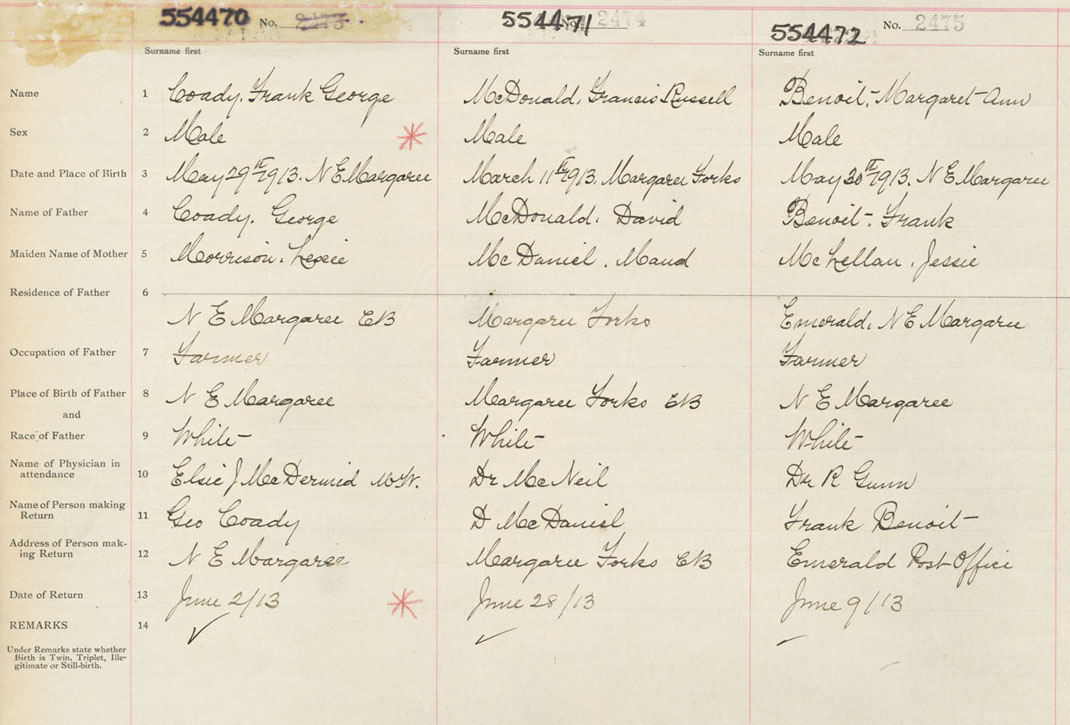 554470 No.
554471 No. 2474
554472 No. 2475
Surname first Surname first Surname first
Name 1 Coady, Frank George McDonald, Francis Russell Benoit, Margaret Ann
Sex 2 Male Male Male
Date and Place of Birth 3 May 29th 1913. N E Margaree March 11th 1913. Margaree Forks May 30th 1913. N E Margaree
Name of Father 4 Coady, George McDonald, David Benoit, Frank
Maiden Name of Mother 5 Morrison, McDaniel, Maud McLellan, Jessie
Residence of Father 6
N E Margaree CB Margaree Forks Emerald, N E Margaree
Occupation of Father 7 Farmer Farmer Farmer
Place of Birth of Father 8 N E Margaree Margaree Forks CB N E Margaree
and
Race of Father 9 White White White
Name of Physician in
attendance 10 Elsie J McDermid Dr McNeil Dr R Gunn
Name of Person making
Return 11 Geo Coady D McDaniel Frank Benoit
Address of Person mak-
ing Return 12 N E Margaree Margaree Forks CB Emerald Post Office
Date of Return 13 June 2/13 June 28/13 June 9/13
REMARKS 14
Under Remarks state whether
Birth is Twin, Triplet, Ille-
gitimate or Still-birth.